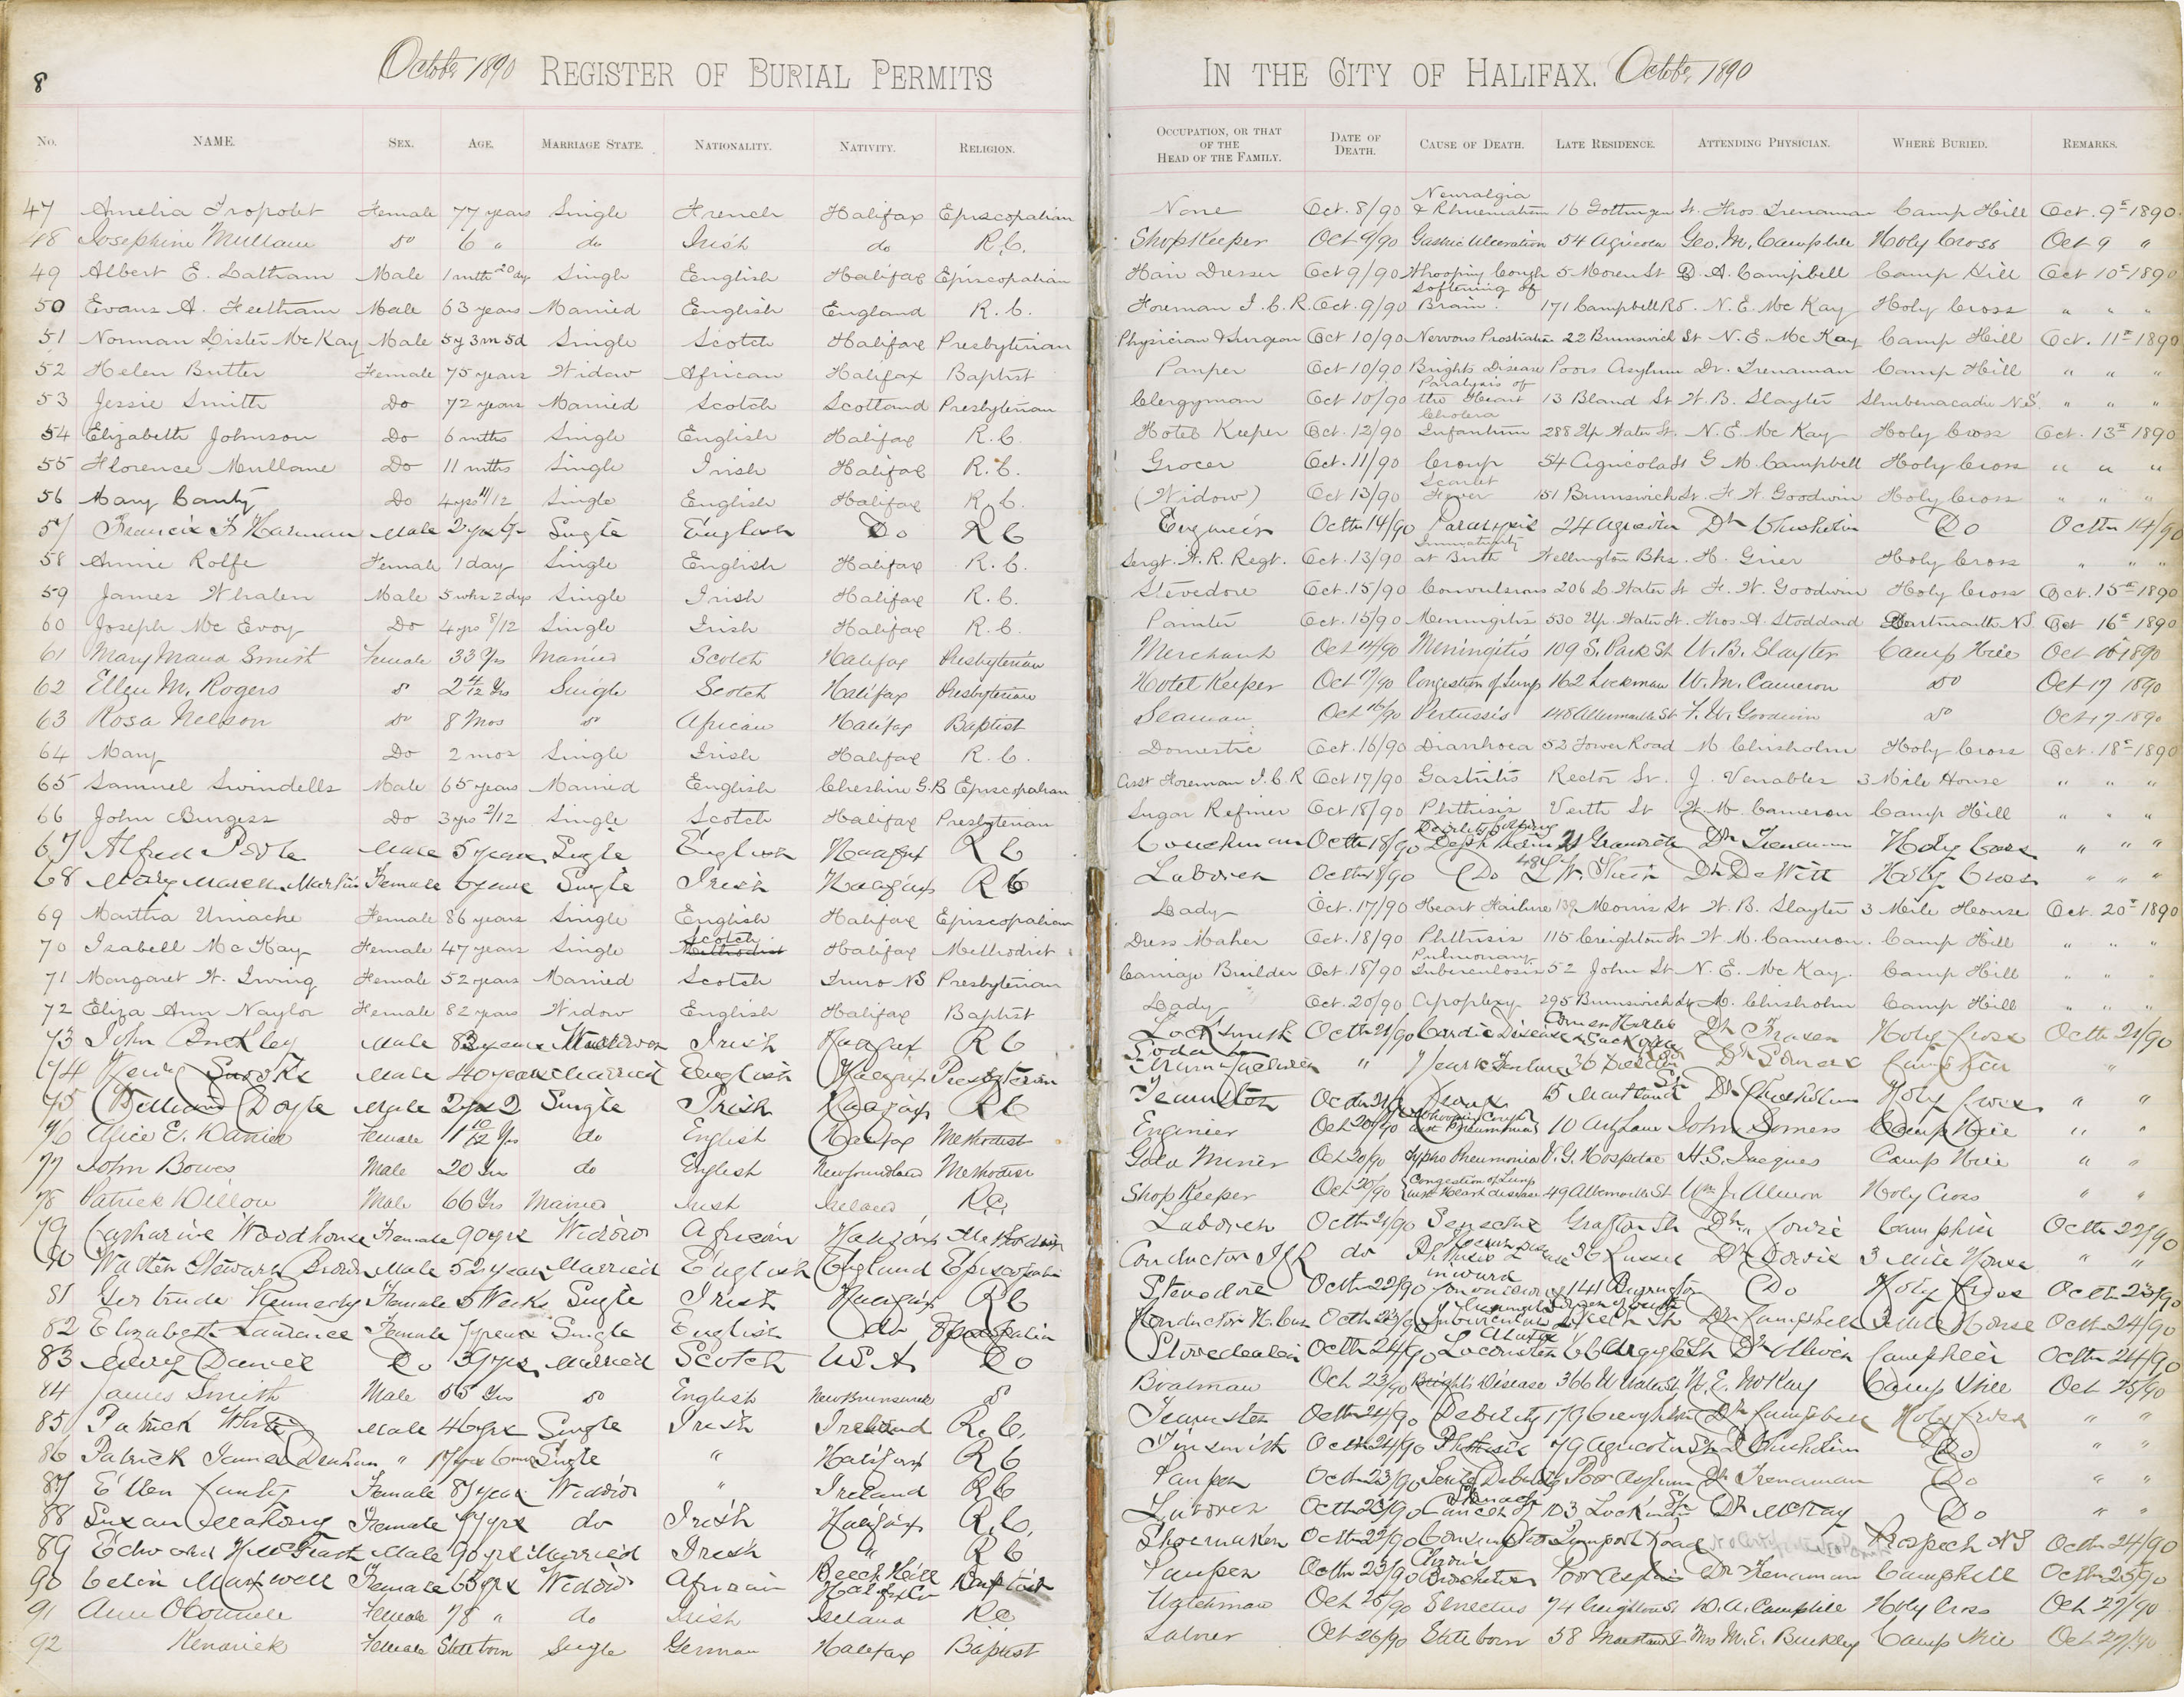 8
October 1890 REGISTER OF BURIAL PERMITS IN THE CITY OF HALIFAX. October 1890
No. NAME. SEX. AGE. MARRIAGE STATE. NATIONALITY. NATIVITY. RELIGION. OCCUPATION, OR THAT OF THE HEAD OF THE FAMILY. DATE OF DEATH. CAUSE OF DEATH. LATE RESIDENCE. ATTENDING PHYSICIAN. WHERE BURIED. REMARKS.
47 Amelia Tropolet Female 77 years Single French Halifax Episcopalian None Oct. 8/90 Neuralgia & Rheumatism 16 Gottingen St. Thos. Trenaman Camp Hill Oct. 9th 1890
48 Josephine Mullane do 6 " do Irish do R.C. Shopkeeper Oct 9/90 Gastric Ulceration 54 Agricola Geo. M. Campbell Holy Cross Oct 9 "
49 Albert E. Latham Male 1 mth 20 dys Single English Halifax Episcopalian Hair Dresser Oct 9/90 Whooping Cough 5 Moren St D. A. Campbell Camp Hill Oct 10th 1890
50 Evans A. Feetham Male 63 years Married English England R.C. Foreman I.C.R. Oct. 9/90 Softening of Brain. 171 Campbell Rd. N. E. McKay Holy Cross " " "
51 Norman Lister McKay Male 5y 3m 5d Single Scotch Halifax Presbyterian Physician & Surgeon Oct 10/90 Nervous Prostration 22 Brunswick St N. E. McKay Camp Hill Oct. 11th 1890
52 Helen Butler Female 75 years Widow African Halifax Baptist Pauper Oct 10/90 Brights Disease Poors Asylum Dr. Trenaman Camp Hill " " "
53 Jessie Smith Do 72 years Married Scotch Scotland Presbyterian Clergyman Oct 10/90 Paralysis of the Heart 13 Bland St W. B. Slayter Shubenacadie N.S. " " "
54 Elizabeth Johnson Do 6 mths Single English Halifax R.C. Hotel Keeper Oct. 12/90 Cholera Infantum 288 Up. Water St. N. E. McKay Holy Cross Oct. 13th 1890
55 Florence Mullane Do 11 mths Single Irish Halifax R.C. Grocer Oct. 11/90 Croup 54 Agricola St G M. Campbell Holy Cross " " "
56 Mary Canty Do 4 yrs 11/12 Single English Halifax R.C. (Widow) Oct 13/90 Scarlet Fever 151 Brunswick St. F. W. Goodwin Holy Cross " " "
57 Francis F Harman Male 2 yrs Single English Do R C Engineer Octbr 14/90 Paralysis 24 Agricola Dr Chisholm Do Octbr 14/90
58 Annie Rolfe Female 1 day Single English Halifax R.C. Sergt. W. R. Regt. Oct. 13/90 Immaturity at Birth Wellington Bks. H. Grier Holy Cross " " "
59 James Whalen Male 5 wks 2 dys Single Irish Halifax R.C. Stevedore Oct. 15/90 Convulsions 206 L. Water St F. W. Goodwin Holy Cross Oct. 15th 1890
60 Joseph McEvoy Do 4 yrs 8/12 Single Irish Halifax R.C. Painter Oct. 15/90 Meningitis 530 Up. Water St. Thos. A. Stoddard Dartmouth N.S Oct 16th 1890
61 Mary Maud Smith Female 33 Yrs Married Scotch Halifax Presbyterian Merchant Oct 14/90 Meningitis 109 S. Park St W. B. Slayter Camp Hill Oct 16 1890
62 Ellen M. Rogers do 2 4/12 Yrs Single Scotch Halifax Presbyterian Hotel Keeper Oct 17/90 Congestion of Lungs 162 Lockman W. M. Cameron do Oct 17 1890
63 Rosa Nelson do 8 Mos do African Halifax Baptist Seaman Oct 16/90 Pertussis 148 Albemarle St F. W. Goodwin do Oct 17 1890
64 Mary Do 2 mos Single Irish Halifax R.C. Domestic Oct. 16/90 Diarrhoea 52 Tower Road M Chisholm Holy Cross Oct. 18th 1890
65 Samuel Swindells Male 65 years Married English Cheshire G.B Episcopalian Asst Foreman I.C.R Oct 17/90 Gastritis Rector St. J. Venables 3 Mile House " " "
66 John Burgess Do 3 yrs 2/12 Single Scotch Halifax Presbyterian Sugar Refiner Oct 18/90 Phthisis Veith St W. M. Cameron Camp Hill " " "
67 Alfred Male 5 years Single English Halifax R C Coachman Octbr 18/90 21 Dr Trenaman Holy Cross " " "
68 Mary Martin Female 6 years Single Irish Halifax R C Laborer Octbr 18/90 Do Dr DeWitt Holy Cross " " "
69 Martha Uniacke Female 86 years Single English Halifax Episcopalian Lady Oct. 17/90 Heart Failure 139 Morris St W. B. Slayter 3 Mile House Oct. 20th 1890
70 Isabell McKay Female 47 years Single Scotch Halifax Methodist Dress Maker Oct. 18/90 Phthisis 115 Creighton St W M. Cameron. Camp Hill " " "
71 Margaret W. Irving Female 52 years Married Scotch Truro NS Presbyterian Carriage Builder Oct. 18/90 Pulmonary Tuberculosis 52 John St N. E. McKay. Camp Hill " " "
72 Eliza Ann Naylor Female 82 years Widow English Halifax Baptist Lady Oct. 20/90 Apoplexy 295 Brunswick St M. Chisholm Camp Hill " " "
73 John Buckley Male 83 years Widdower Irish Halifax R C Locksmith Octbr 21/90 Cardic Disease Dr Fraser Holy Cross Octbr 21/90
74 Male 40 years Married English Halifax Presbyterian Soda Water " Heart Failure 36 Dr Somers Camp Hill "
75 William Doyle Male 2 yrs Single Irish Halifax R C Teamster Octbr 21/90 5 Maitland St Dr Chisholm Holy Cross " "
76 Alice E. Female 1 10/12 Yrs do English Halifax Methodist Engineer Oct 20/90 Whooping Cough and Pneumonia 10 John Somers Camp Hill " "
77 John Bowes Male 20 Yrs do English Newfoundland Methodist Gold Miner Oct 20/90 Typho Pneumonia V. G. Hospital H. S. Jacques Camp Hill " "
78 Patrick Dillon Male 66 Yrs Married Irish Ireland R.C. Shop Keeper Oct 20/90 Congestion of Lung and Heart disease 49 Albemarle St Wm J. Almon Holy Cross " "
79 Catharine Woodhouse Female 90 yrs Widdow African Halifax Methodist Laborer Octbr 21/90 Grafton St Dr Camphill Octbr 22/90
80 Walter Stewart Brown Male 52 years Married English England Episcopalian Conductor ICR do Phthisis 36 Russell Dr 3 Mile House " "
81 Gertrude Kennedy Female 5 Weeks Single Irish Halifax R C Stevedore Octbr 22/90 141 Do Holy Cross Octbr 23/90
82 Elizabeth Laurance Female 7 years Single English do Episcopalian Conductor Octbr 23/90 Dr Campbell 3 Mile House Octbr 24/90
83 Mary Daniel Do 39 yrs Married Scotch U S A Do Stovedealer Octbr 24/90 66 Argyle St Dr Oliver Camphill Octbr 24/90
84 James Smith Male 55 Yrs do English New Brunswick do Boatman Oct 23/90 Bright's Disease 366 U Water St N. E. McKay Camp Hill Oct 25/90
85 Patrick White Male 46 yrs Single Irish Ireland R.C. Teamster Octbr 24/90 Debility 179 Creighton Dr Campbell Holy Cross " "
86 Patrick James " Single " Halifax R C Tinsmith Octbr 24/90 Phthisis 79 Agricola St Dr Chisholm Do " "
87 Ellen Canty Female 87 years Widdow " Ireland R C Pauper Octbr 23/90 Senile Debility Poor Asylum Dr Trenaman Do " "
88 Susan Mahoney Female do Irish Halifax R.C. Laborer Octbr 23/90 Cancer of Stomach 103 Lockman St Dr McKay Do " "
89 Edward H McGrath Male 90 yrs Married Irish " R C Shoemaker Octbr 22/90 Road Prospect NS Octbr 24/90
90 Celin Maxwell Female 65 yrs Widdow African Beech Hill Halifax Co Baptist Pauper Octbr 23/90 Bronchitis Poor Asylum Dr Trenaman Camphill Octbr 25/90
91 Ann O'Connell Female 78 " do Irish Ireland R.C. Watchman Oct 25/90 Senectus 74 Creighton St D. A. Campbell Holy Cross Oct 27/90
92 Kenrick Female Still born Single German Halifax Baptist Laborer Oct 26/90 Still born 58 Maitland St Mrs M. E. Buckley Camp Hill Oct 27/90